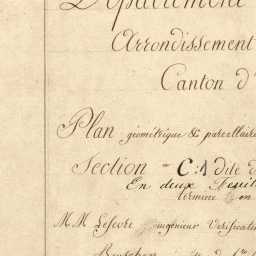 Département
Arrondissement
Canton d'
Plan géométrique & parcellaire
Section = C:1 Dite d
En deux Feuil
terminé
M.M. Lefevre ingénieur Vérificat